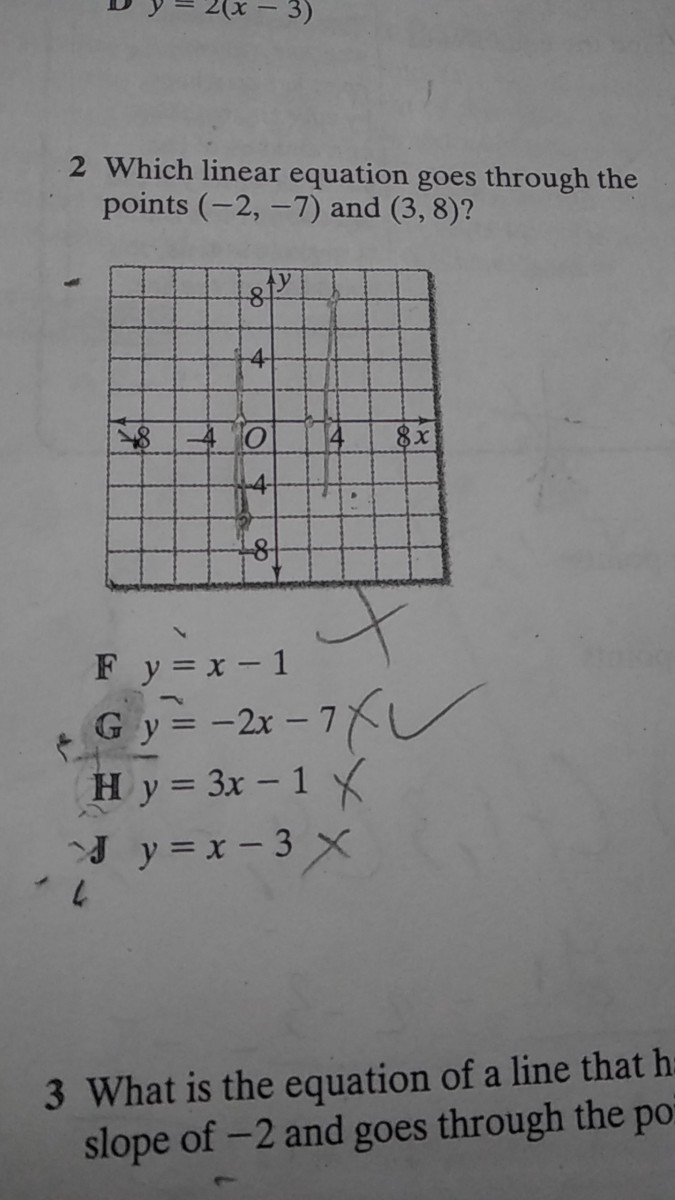 D y = 2(x − 3)
2 Which linear equation goes through the
points (−2, −7) and (3, 8)?
y
8
4
−8 −4 O 4 8 x
−4
−8
F y = x − 1
G y = −2x − 7
H y = 3x − 1
J y = x − 3
3 What is the equation of a line that
slope of −2 and goes through the